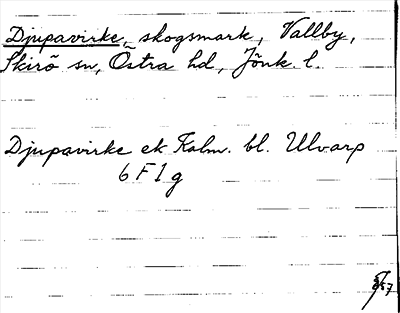 Djupavirke, skogsmark, Vallby,
Skirö sn, Östra hd, Jönk. l.
Djupavirke ek Kalm. bl. Ulvarp
6 F 1 g